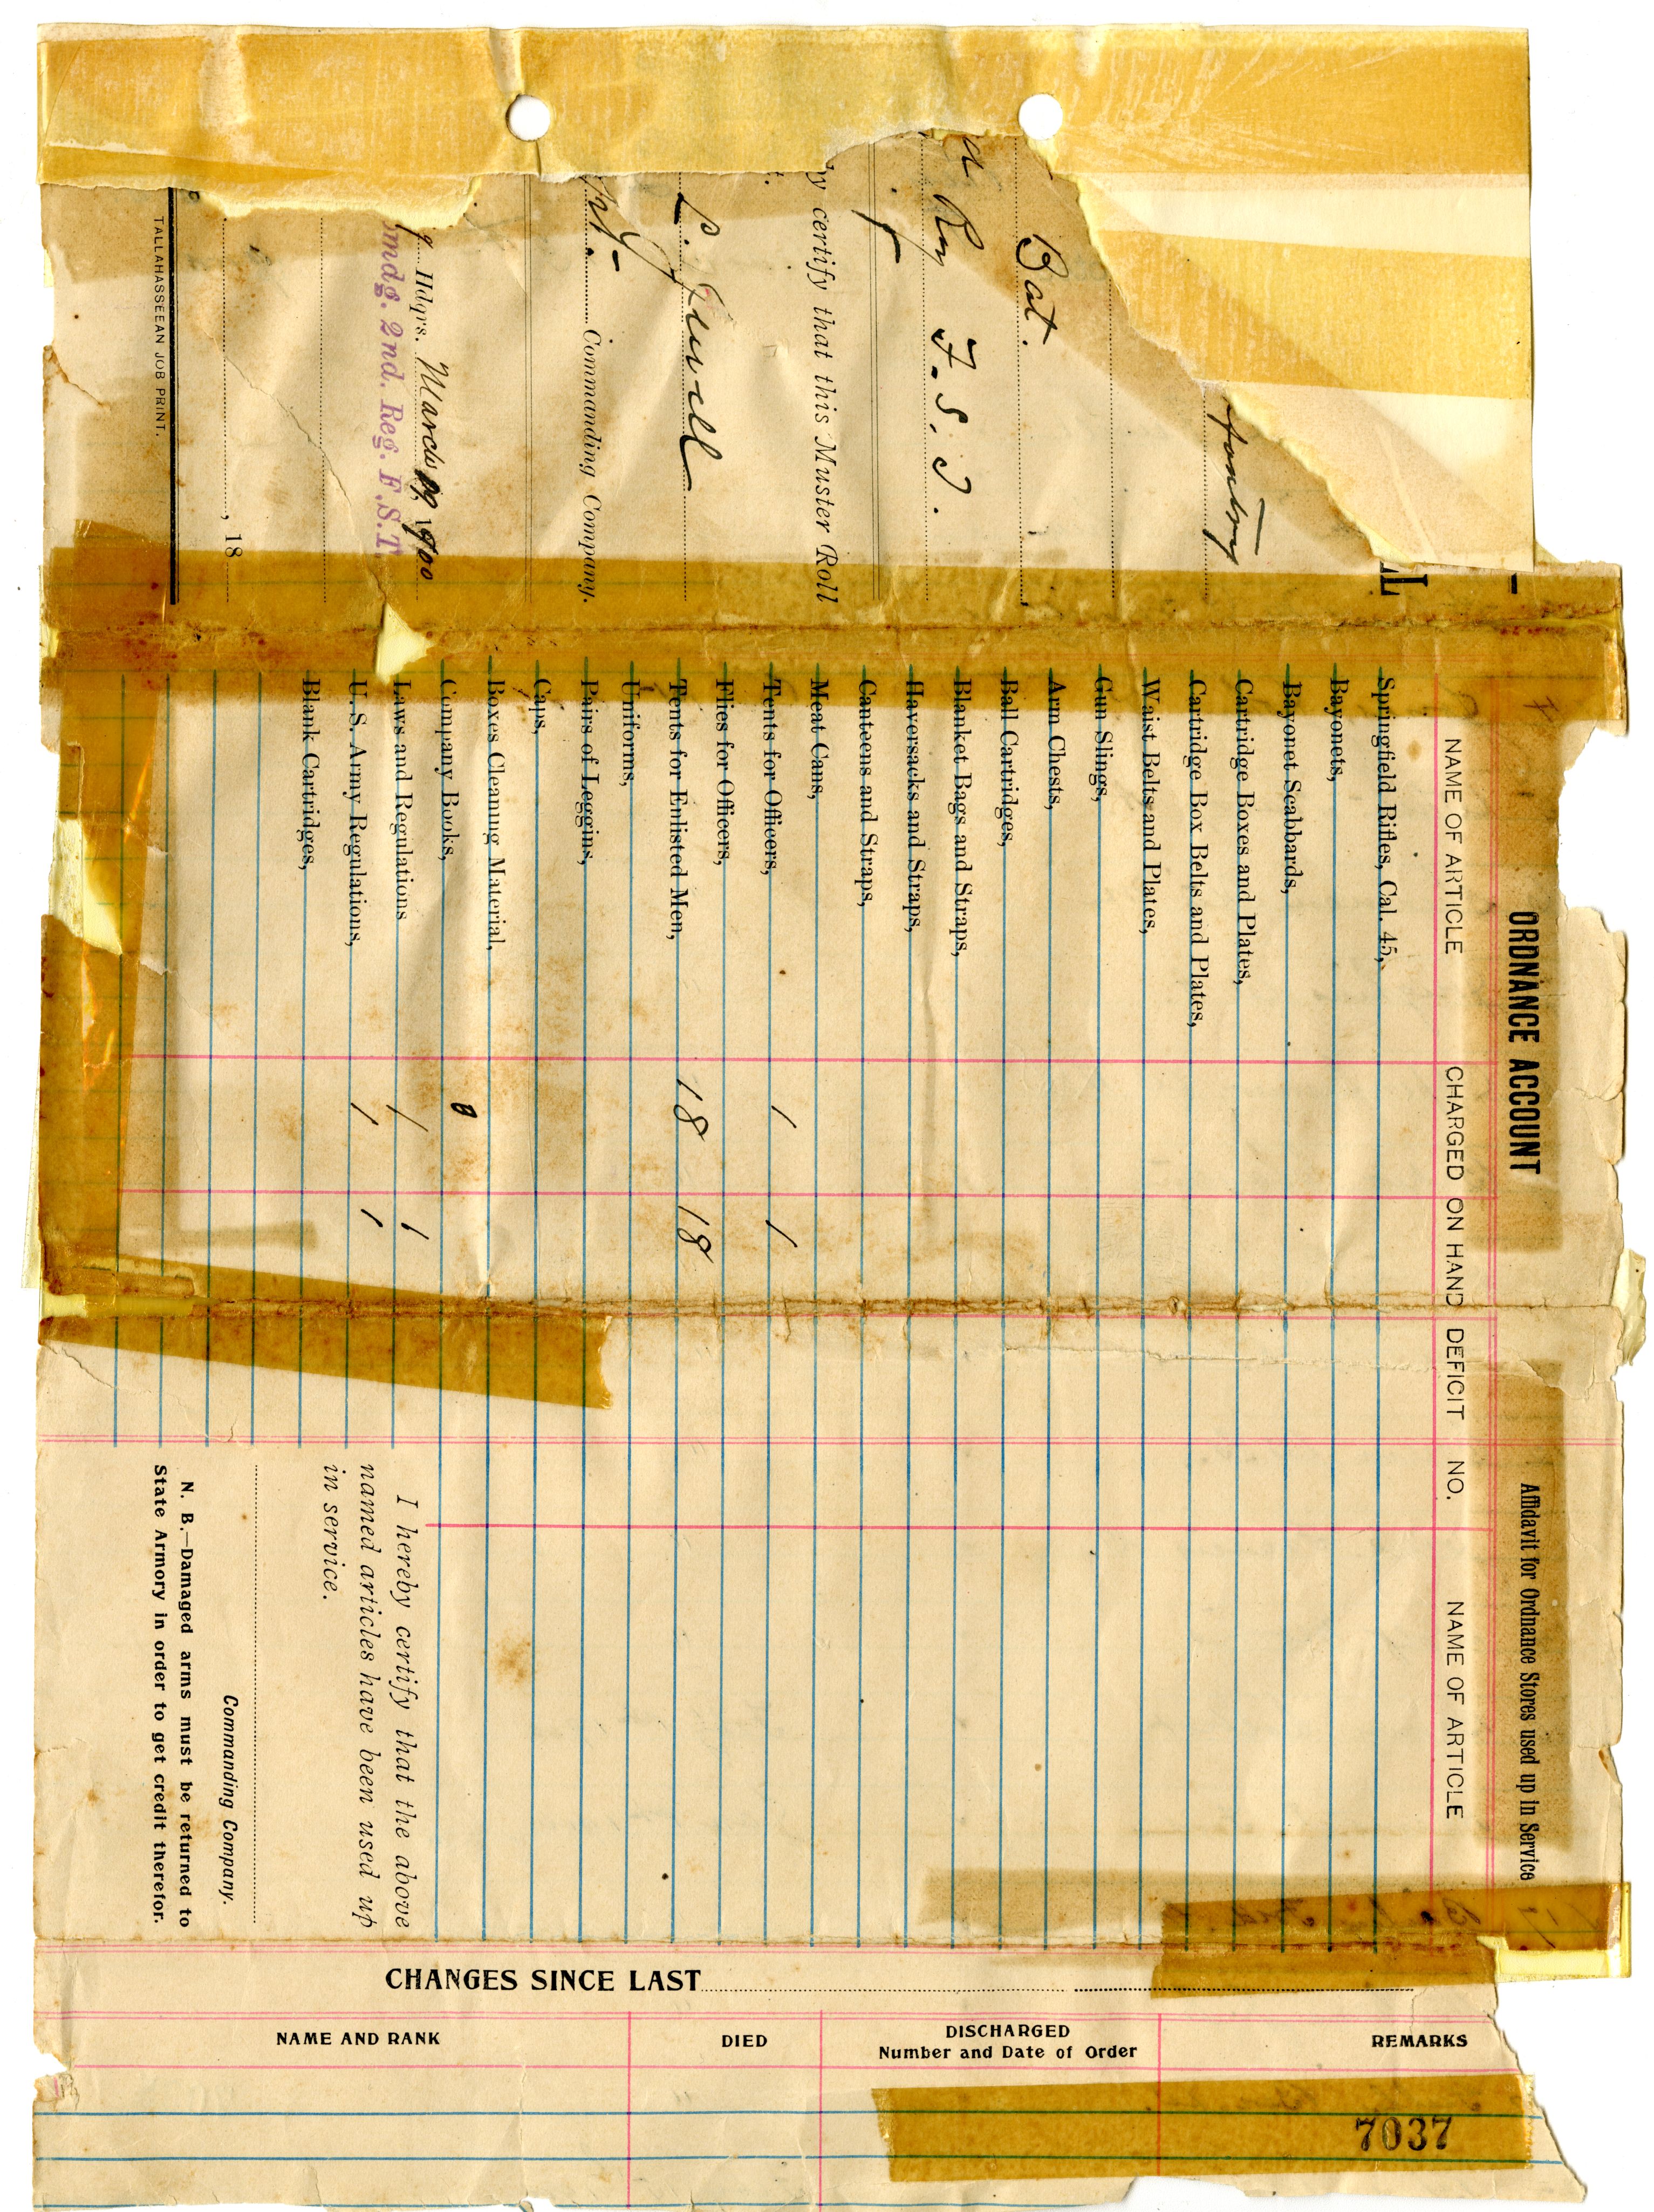 Bat.
d Rg F. S. T.
y certify that this Muster Roll
L. Jewell
Commanding Company.
Hdqrs. March 1900
omdg. 2nd. Reg. F.S.T.
, 18
TALLAHASSEEAN JOB PRINT.
ORDNANCE ACCOUNT
NAME OF ARTICLE CHARGED ON HAND DEFICIT
Springfield Rifles, Cal. 45,
Bayonets,
Bayonet Scabbards,
Cartridge Boxes and Plates,
Cartridge Box Belts and Plates,
Waist Belts and Plates,
Gun Slings,
Arm Chests,
Ball Cartridges,
Blanket Bags and Straps,
Haversacks and Straps,
Canteens and Straps,
Meat Cans,
Tents for Officers, 1 1
Flies for Officers,
Tents for Enlisted Men, 18 18
Uniforms,
Pairs of Leggins,
Caps,
Boxes Cleaning Material,
Company Books,
Laws and Regulations 1 1
U. S. Army Regulations, 1 1
Blank Cartridges,
Affidavit for Ordnance Stores used up in Service
NO. NAME OF ARTICLE
I hereby certify that the above
named articles have been used up
in service.
Commanding Company.
N. B.—Damaged arms must be returned to
State Armory in order to get credit therefor.
CHANGES SINCE LAST
NAME AND RANK DIED DISCHARGED Number and Date of Order REMARKS
7037